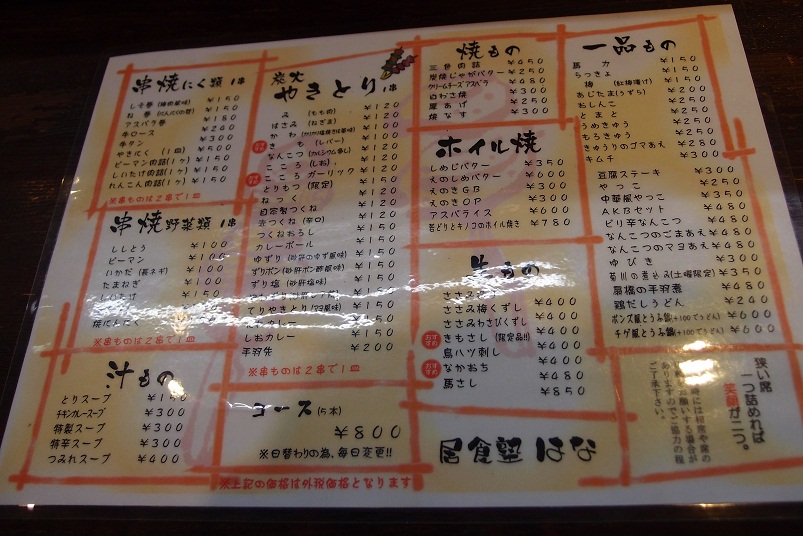 串焼にく類 1串
しそ巻(梅肉風味) ¥150
ね巻 ¥150
アスパラ巻 ¥180
牛ロース ¥240
牛タン ¥300
やきにく(1皿) ¥500
ピーマン肉詰(1ヶ) ¥150
しいたけ肉詰(1ヶ) ¥150
れんこん肉詰(1ヶ) ¥150
※串ものは2串で1皿
串焼野菜類 1串
ししとう ¥100
ピーマン ¥100
いかだ(長ネギ) ¥100
たまねぎ ¥100
しいたけ
焼にんにく
※串ものは2串で1皿
汁もの
とりスープ ¥150
チキンカレースープ ¥300
特製スープ ¥300
特辛スープ ¥300
つみれスープ ¥400
炭火
やきとり 1串
み(もも肉) ¥120
はさみ(ねぎま) ¥120
かわ ¥120
きも(レバー) ¥120
なんこつ(カルシウム多し) ¥120
こころ(しお) ¥120
こころガーリック ¥120
とりもつ(限定) ¥150
ねっく ¥150
自家製つくね ¥150
壺つくね(辛口) ¥150
つくねおろし ¥150
カレーボール ¥150
ゆずり(砂肝のゆず風味) ¥150
ずりポン(砂肝ポン酢風味) ¥150
ずり塩(砂肝塩味) ¥150
てりやきとり ¥150
しおカレー ¥150
手羽先 ¥200
※串ものは2串で1皿
コース(5本)
¥800
※日替わりの為、毎日変更!!
※上記の価格は外税価格となります
焼もの
三色肉詰 ¥450
炭焼じゃがバター ¥250
クリームチーズアスパラ ¥480
白わさ焼 ¥300
厚あげ ¥250
焼なす ¥300
ホイル焼
しめじバター ¥350
えのしめバター ¥600
えのきGB ¥350
えのきOP ¥350
アスパライス ¥600
若どりとキノコのホイル焼き ¥780
生もの
ささみ梅くずし ¥400
ささみわさびくずし ¥400
おすすめ きもさし(限定品!!) ¥400
鳥ハツ刺し ¥450
おすすめ なかおち ¥480
馬さし ¥850
居食塾 はな
一品もの
らっきょ ¥150
梅(紅梅漬け) ¥150
あじたま(うずら) ¥200
おしんこ ¥250
とまと ¥250
うめきゅう ¥250
もろきゅう ¥250
きゅうりのゴマあえ ¥250
キムチ ¥300
豆腐ステーキ ¥350
やっこ ¥250
中華風やっこ ¥350
AKBセット ¥480
ピリ辛なんこつ ¥250
なんこつのごまあえ ¥250
なんこつのマヨあえ ¥250
ゆびき ¥300
¥350
手羽煮 ¥480
鶏だしうどん ¥240
ポンズ風とうふ鍋(+100でうどん) ¥600
チゲ風とうふ鍋(+100でうどん) ¥600
狭い席
一つ詰めれば
笑顔が二つ。